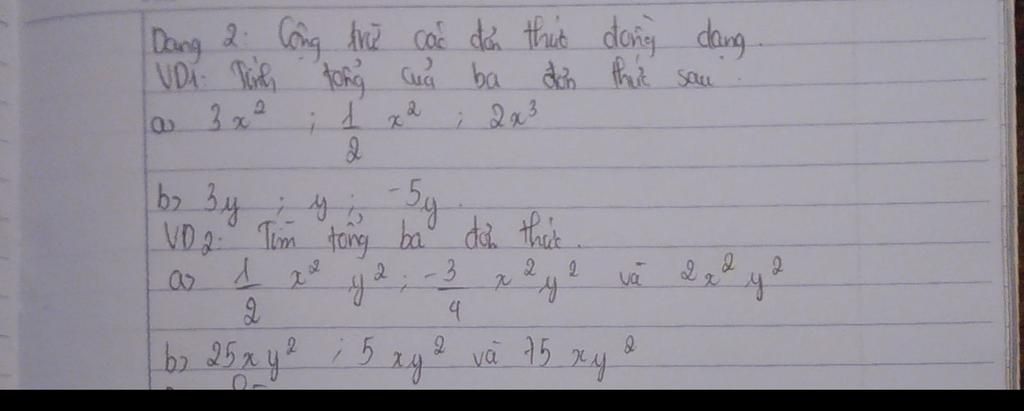 Dạng 2: Cộng trừ các đơn thức đồng dạng.
VD1: Tính tổng của ba đơn thức sau.
a) 3x² ; 1/2 x² ; 2x³
b) 3y ; y ; -5y.
VD2: Tìm tổng ba đơn thức.
a) 1/2 x² y² ; -3/4 x² y² và 2x² y²
b) 25xy² ; 5 xy² và 75 xy²